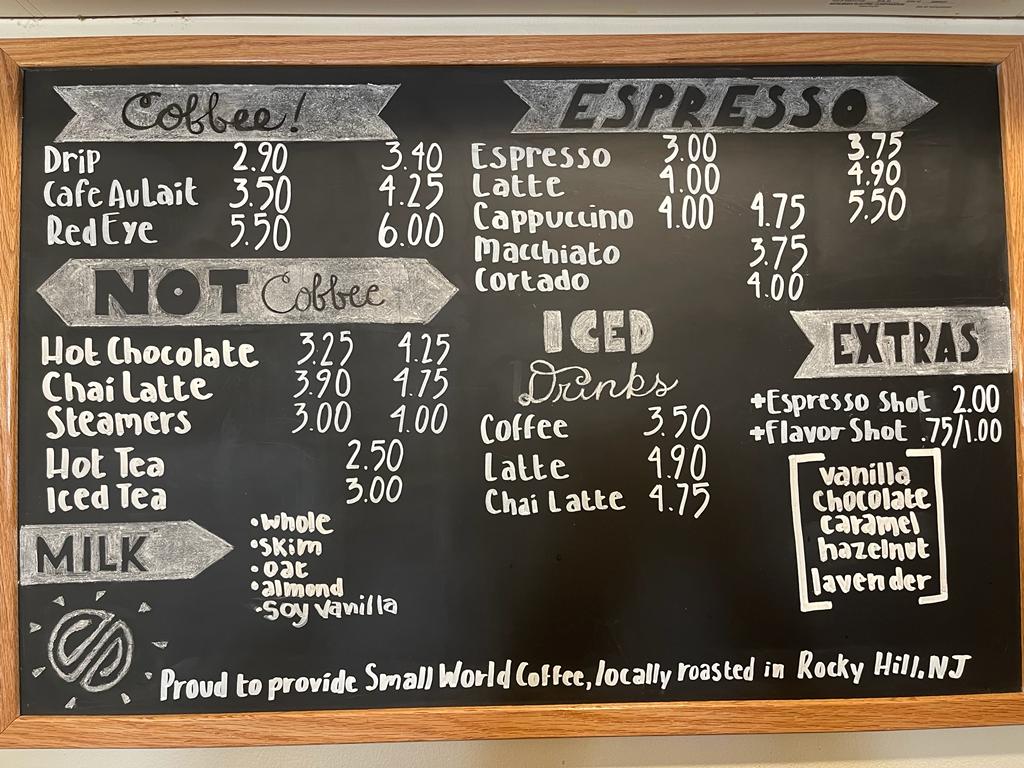 Coffee!
Drip 2.90 3.40
Cafe Au Lait 3.50 4.25
Red Eye 5.50 6.00
NOT Coffee
Hot Chocolate 3.25 4.25
Chai Latte 3.90 4.75
Steamers 3.00 4.00
Hot Tea 2.50
Iced Tea 3.00
MILK
•whole
•skim
•oat
•almond
•Soy vanilla
ESPRESSO
Espresso 3.00 3.75
Latte 4.00 4.90
Cappuccino 4.00 4.75 5.50
Macchiato 3.75
Cortado 4.00
ICED
Drinks
Coffee 3.50
Latte 4.90
Chai Latte 4.75
EXTRAS
+Espresso Shot 2.00
+Flavor Shot .75/1.00
vanilla
chocolate
caramel
hazelnut
lavender
Proud to provide Small World Coffee, locally roasted in Rocky Hill, NJ